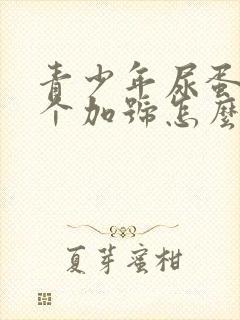 青少年尿蛋
个加号怎麼
夏芽蜜柑